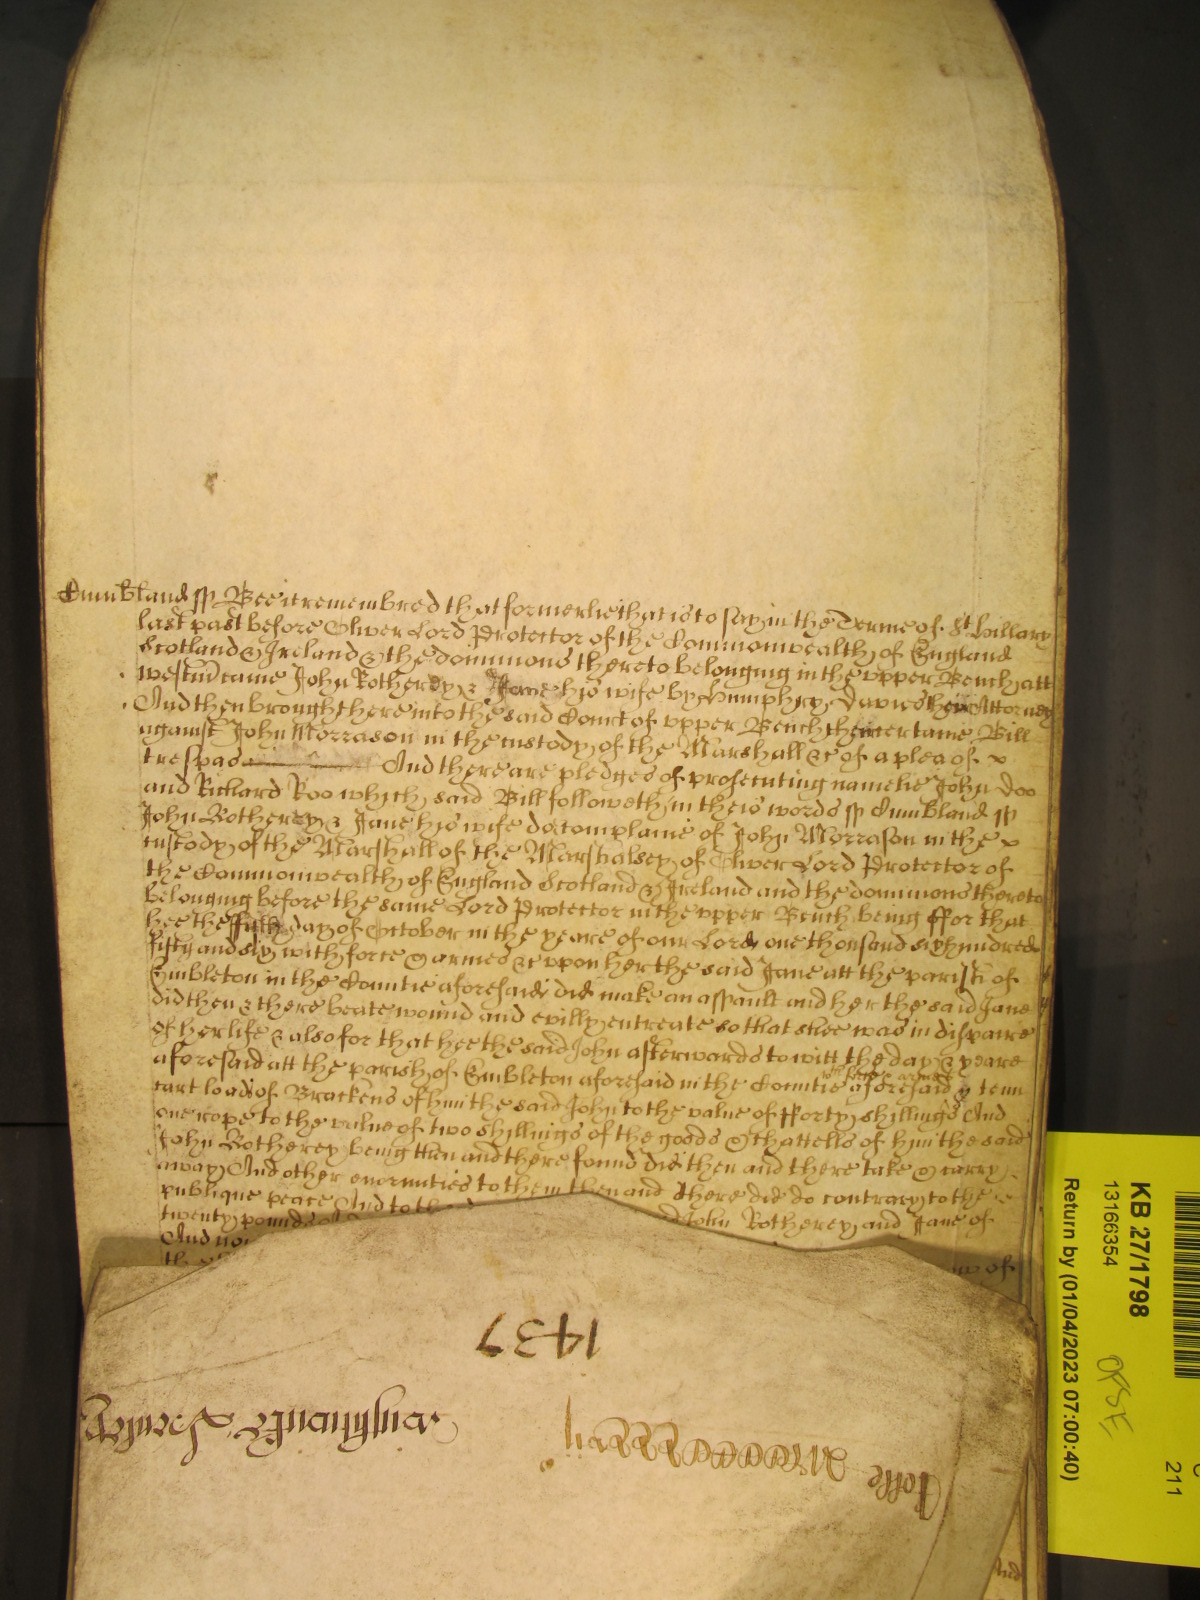 Cumbland ss Bee it remembred that formerlie that is to say in the Terme of St. Hillary
last past before Oliver Lord Protector of the Commonwealth of England
Scotland & Ireland & the dominions thereto belonging in the upper Bench att
westmr came John Rotherey & Jane his wife by Humphrey Davies their Attorney
And then brought here into the said Court of upper Bench their certaine Bill
against John Morrason in the custody of the Marshall &c of a plea of x
trespas And there are pledges of prosecuting namelie John Doo
and Richard Roo which said Bill followeth in theis words ss Cumbland ss
John Rotherey & Jane his wife do complaine of John Morrason in the x
custody of the Marshall of the Marshalsey of Oliver Lord Protector of
the Commonwealth of England Scotland & Ireland and the dominions thereto
belonging before the same Lord Protector in the upper Bench being ffor that
hee the day of October in the yeare of our Lord one thousand six hundred
fifty and six with force & armes &c upon her the said Jane att the parish of
Embleton in the Countie aforesaid did make an assault and her the said Jane
did then & there beate wound and evilly entreate so that shee was in dispaire
of her life & also for that hee the said John afterwards to witt the day & yeare
aforesaid att the parish of Embleton aforesaid in the Countie aforesaid with force & armes tenn
cart loads of Brackens of him the said John to the value of fforty shillings And
one rope to the value of two shillings of the goods & chattells of him the said
John Rotherey being then and there found did then and there take & carry
away And other enormities to them then and there did do contrary to the
publique peace And to th John Rotherey and Jane of
twenty pounds
And no of
th
1437
KB 27/1798
13166354
Return by (01/04/2023 07:00:40)
211
And